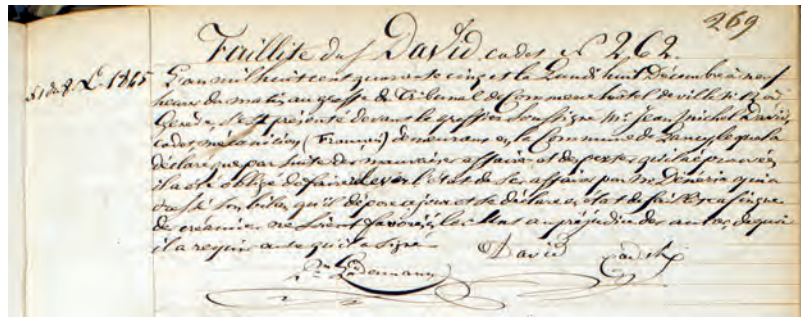 269
Faillite du Sr David cadet No 262
1845 L'an mil huit cent quarante cinq et le Lundi huit Décembre à neuf
heures du matin, au greffe du Tribunal de Commerce hôtel de ville
Genève, s'est présenté devant le greffier soussigné Mr Jean Michel David
cadet, mécanicien, (Français) demeurant en la Commune de Lancy, lequel a
déclaré que par suite des mauvaises affaires et des pertes qu'il a éprouvées,
il a été obligé de faire lever l'état de ses affaires par Mr Dénéria qui a
dressé son bilan qu'il dépose à ce jour et se déclare en état de faillite
de créanciers ne soient favorisés, les uns au préjudice des autres, de quoi
il a requis acte qu'il a signé
David Cadet